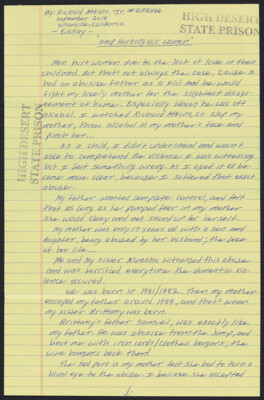 By: Richard Atkins, Jr. #
September 2018
Susanville, California
HIGH DESERT
STATE PRISON
- Essay -
"Stop Hurting our Women"
Men hurt women due to the lack of love in their
childhood. But that's not always the case, 'cause I
had an abusive father as a kid. And he would
fight my lovely mother for the slightest disagr-
eement at home. Especially when he was off
alcohol. I watched Richard Atkins, Sr. slap my
mother, throw alcohol in my mother's face and
punch her...
HIGH DESERT
STATE PRISON
As a child, I didn't understand and wasn't
able to comprehend the violence I was witnessing
but I felt something wrong. As I aged it'd be-
come more clear, because I suffered that exact
abuse.
My father wanted complete control, and felt
that as long as he pumped fear in my mother
she would obey and not stand up for herself.
My mother was only 17 years old with a son and
daughter, being abused by her husband; the love
of her life...
Me and my sister witnessed this abuse
and was terrified everytime the domestic vio-
lence occured.
We was born in 1981/1982. Then my mother
escaped my father around 1984, and that's when
my sister Brittany was born.
Brittany's father Samuel, was exactly like
my father. He was abusive from the jump, and
beat me with iron cords/clothes hangers; the
wire hangers back then.
The sad part is my mother felt she had to turn a
blind eye to the abuse. I believe she accepted
1.